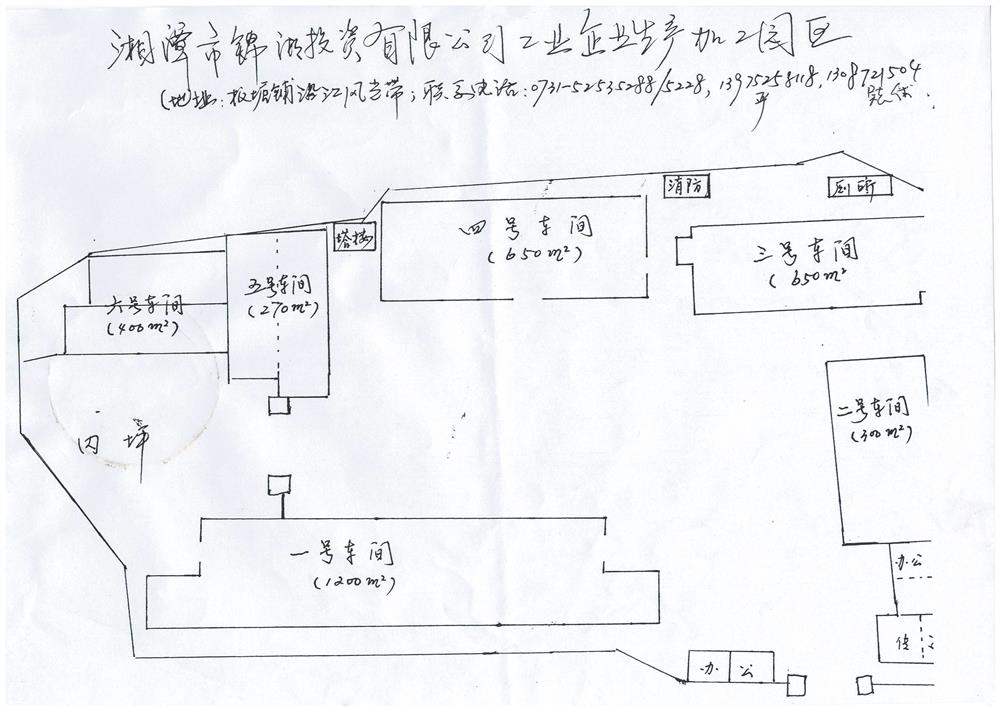 湘潭市锦湖投资有限公司工业企业生产加工园区
(地)址:板塘铺沿江风光带;联系电话:0731-52535288/5228,13975258118,138721504
消防
厕所
塔楼
四号车间
(650m²)
三号车间
(650m²
五号车间
(270m²)
六号车间
(400m²)
二号车间
(300m²)
内坪
一号车间
(1200m²)
办公
传
办公